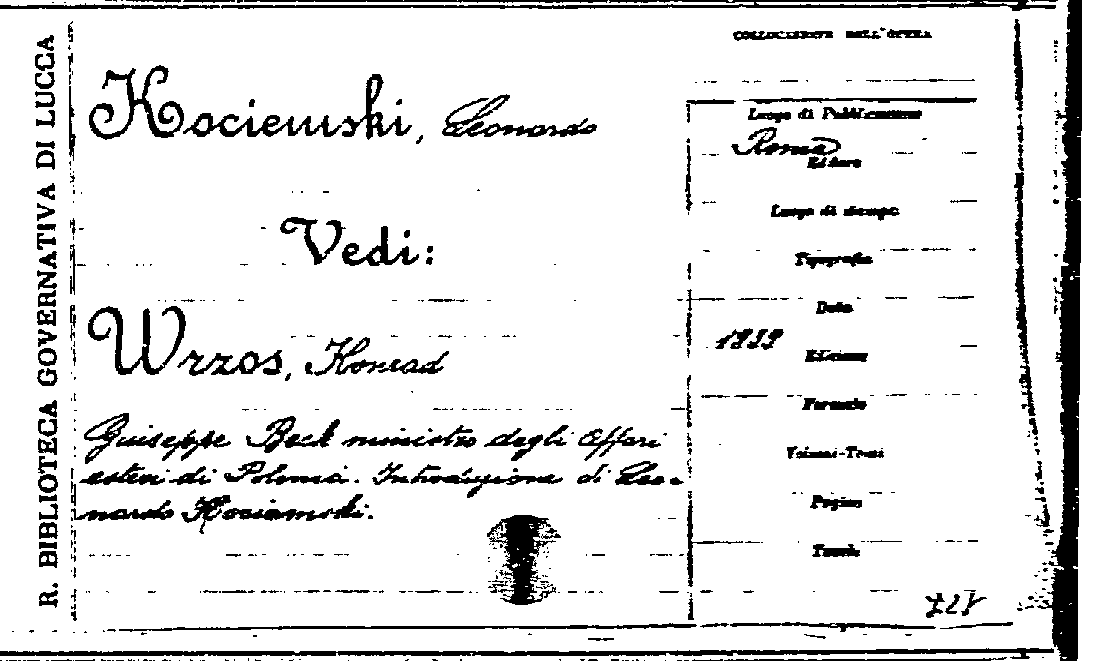 R. BIBLIOTECA GOVERNATIVA DI LUCCA
Kociemski, Leonardo
Vedi:
Wrzos, Konrad
Giuseppe Beck ministro degli Affari
esteri di Polonia. Introduzione di Leo-
nardo Kociemski.
COLLOCAZIONE DELL'OPERA
Luogo di Pubblicazione
Roma
Editore
Luogo di stampa
Tipografia
Data
1939
Edizione
Formato
Volumi-Tomi
Pagine
Tavole